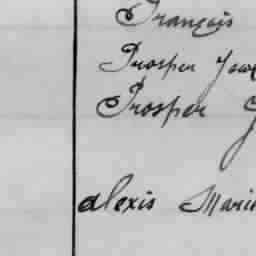 François
Prosper
Prosper
alexis Marie